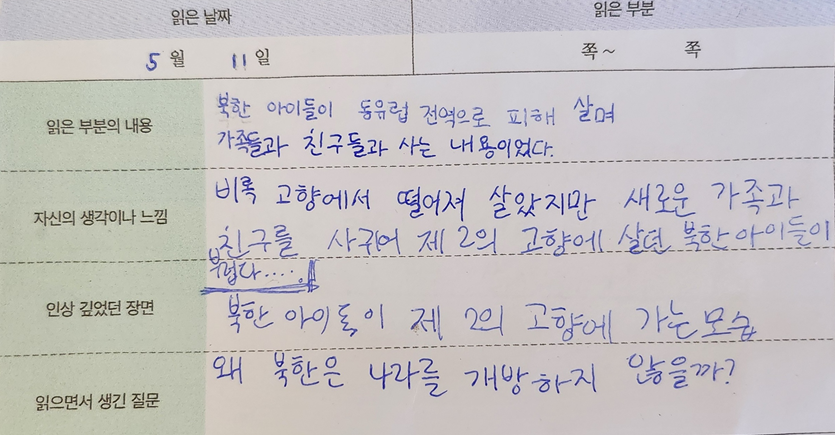 읽은 날짜
읽은 부분
5월 11일
쪽~ 쪽
읽은 부분의 내용
북한 아이들이 동유럽 전역으로 피해 살며
가족들과 친구들과 사는 내용이었다.
자신의 생각이나 느낌
비록 고향에서 떨어져 살았지만 새로운 가족과
친구를 사귀어 제2의 고향에 살던 북한아이들이
부럽다.....
인상 깊었던 장면
북한 아이들이 제 2의 고향에 가는모습
읽으면서 생긴 질문
왜 북한은 나라를 개방하지 않을까?